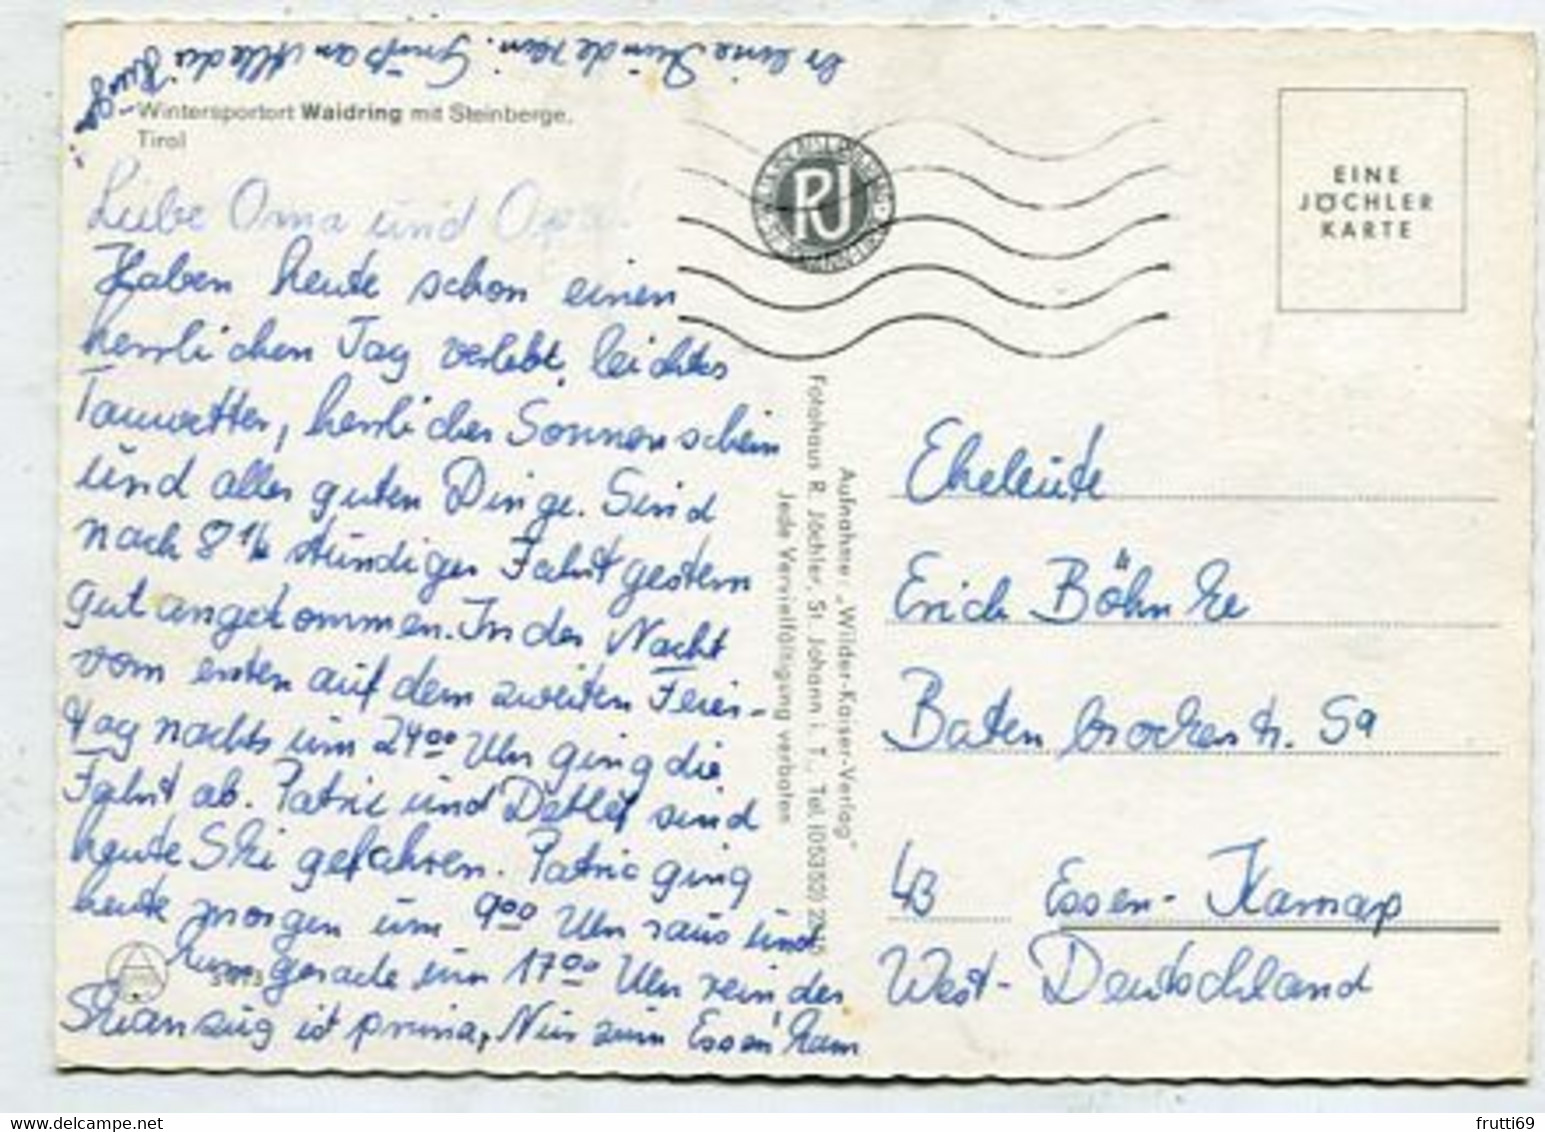 Wintersportort Waidring mit Steinberge,
Tirol
Liebe Oma und Opa!
Haben heute schon einen
herrlichen Tag verlebt, leichtes
Tauwetter, herrlicher Sonnenschein
und aller guten Dinge. Sind
nach 8 1/2 stündiger Fahrt gestern
gut angekommen. In der Nacht
vom ersten auf dem zweiten Feier-
tag nachts um 24 00 Uhr ging die
Fahrt ab. Patric und Detlef sind
heute Ski gefahren. Patric ging
heute morgen um 9 00 Uhr raus und
kam gerade um 17 00 Uhr rein, der
Skianzug ist prima, Nur zum Essen kam
er eine Stunde rein. Gruß an Alle
EINE
JÖCHLER
KARTE
RJ
Aufnahme „Wilder-Kaiser-Verlag"
Fotohaus R. Jöchler, St. Johann i. T., Tel. (05352)
Jede Vervielfältigung verboten
Eheleute
Erich Böhnke
Batenbrockerstr. 5a
43 Essen-Karnap
West-Deutschland
frutti69